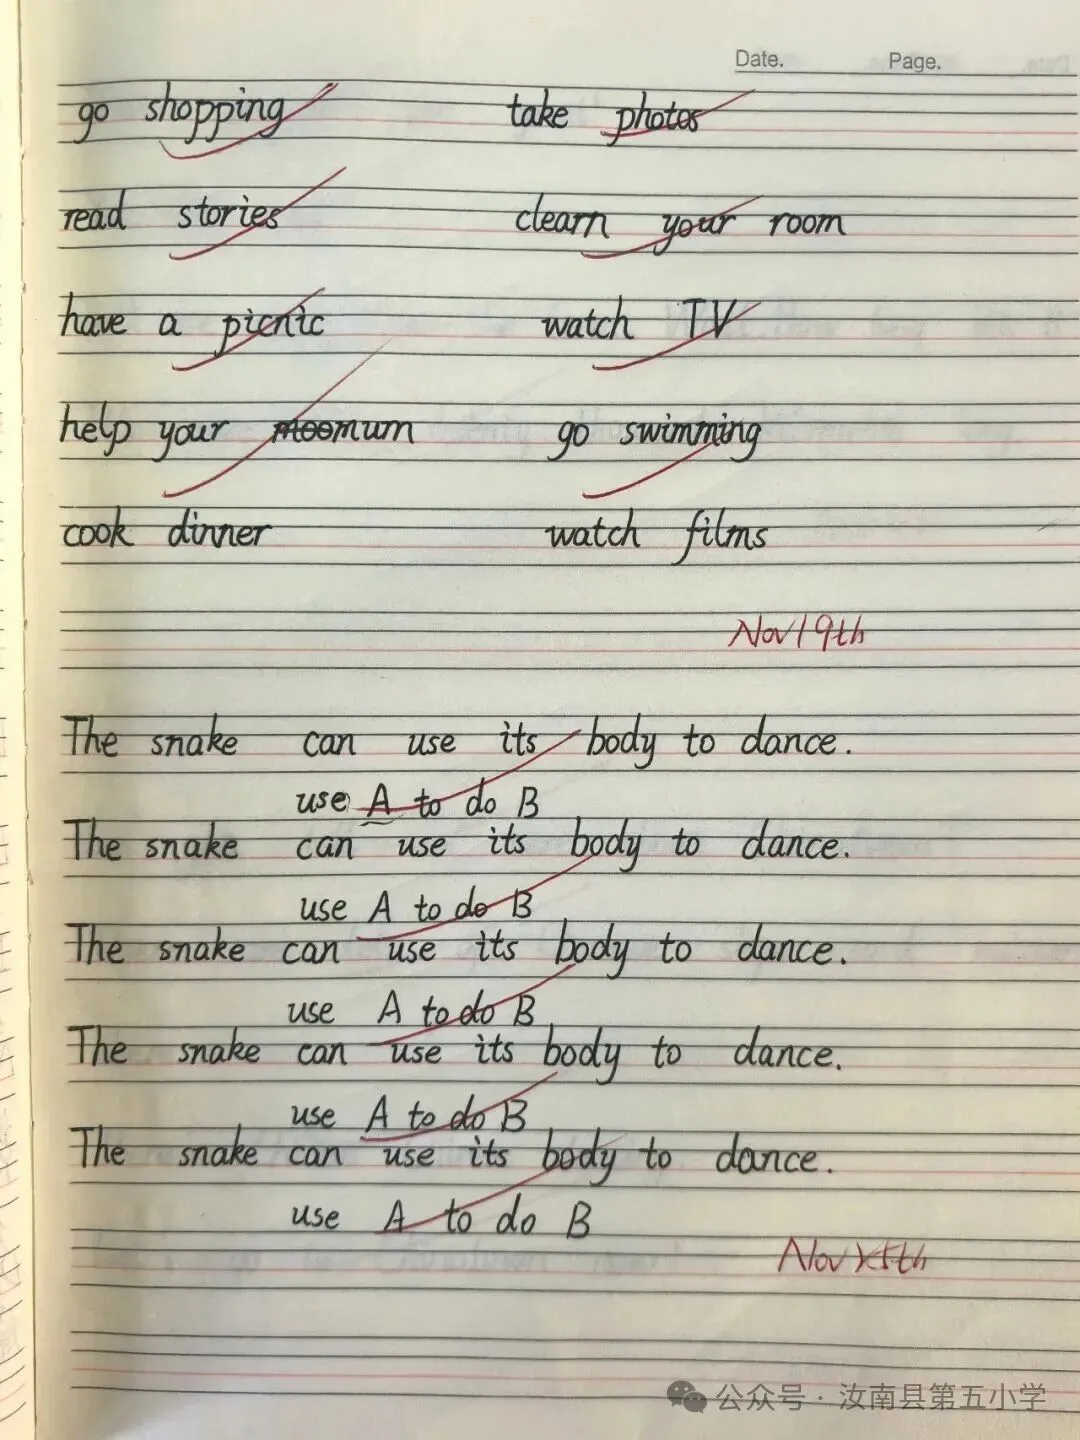 Date. Page.
go shopping take photos
read stories clearn your room
have a picnic watch TV
help your mum go swimming
cook dinner watch films
Nov19th
The snake can use its body to dance.
use A to do B
The snake can use its body to dance.
use A to do B
The snake can use its body to dance.
use A to do B
The snake can use its body to dance.
use A to do B
The snake can use its body to dance.
use A to do B
Nov
公众号·汝南县第五小学